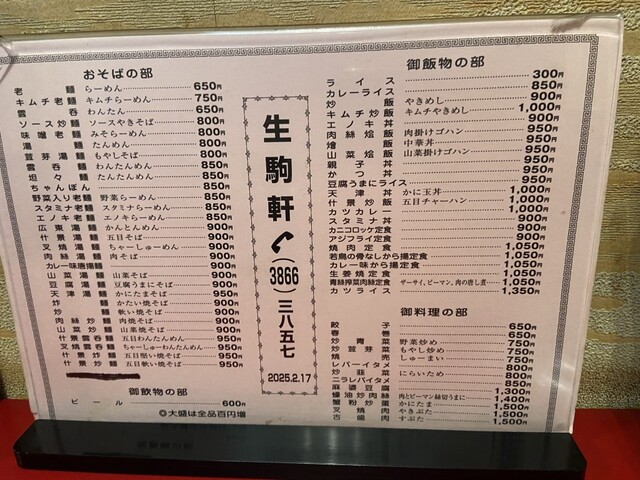 おそばの部
老麺 らーめん 650円
キムチ老麺 キムチらーめん 750円
雲呑 わんたん 650円
ソース炒麺 ソースやきそば 800円
味噌老麺 みそらーめん 800円
湯麺 たんめん 800円
荳芽湯麺 もやしそば 800円
雲呑麺 わんたんめん 850円
坦々麺 たんたんめん 850円
ちゃんぽん 850円
野菜入り老麺 野菜らーめん 850円
スタミナ老麺 スタミナらーめん 850円
エノキ老麺 エノキらーめん 850円
広東湯麺 かんとんめん 900円
什景湯麺 五目そば 900円
叉焼湯麺 ちゃーしゅーめん 900円
肉絲湯麺 肉そば 900円
カレー味唐揚麺 900円
山菜湯麺 山菜そば 900円
豆腐湯麺 豆腐うまにそば 900円
天津湯麺 かにたまそば 950円
炸麺 かたい焼そば 900円
炒麺 軟い焼そば 900円
肉絲炒麺 肉焼そば 900円
山菜炒麺 山菜焼そば 900円
什景雲呑麺 五目わんたんめん 950円
叉焼雲呑麺 ちゃーしゅーわんたんめん 950円
什景炸麺 五目堅い焼そば 950円
什景炒麺 五目軟い焼そば 950円
御飲物の部
ビール 600円
◎大盛は全品百円増
生駒軒
(3866)三八五七
2025.2.17
御飯物の部
ライス 300円
カレーライス 850円
炒飯 やきめし 900円
キムチ炒飯 キムチやきめし 1,000円
エノキ丼 900円
肉絲燴飯 肉掛けゴハン 950円
燴飯 中華丼 950円
山菜燴飯 山菜掛けゴハン 950円
親子丼 950円
かつ丼 950円
豆腐うまにライス 950円
天津丼 かに玉丼 1,000円
什景炒飯 五目チャーハン 1,000円
カツカレー 1,000円
スタミナ丼 900円
カニコロッケ定食 900円
アジフライ定食 900円
焼肉定食 1,050円
若鳥の骨なしから揚定食 1,050円
カレー味から揚定食 1,050円
生姜焼定食 1,050円
青絲搾菜肉絲定食 ザーサイ、ピーマン、肉の唐し煮 1,050円
カツライス 1,350円
御料理の部
餃子 650円
春巻 650円
炒青菜 野菜炒め 750円
炒荳芽菜 もやし炒め 750円
焼売 しゅーまい 750円
レバーイタメ 850円
炒韮菜 にらいため 800円
ニラレバイタメ 850円
麻婆豆腐 850円
蠔油炒肉絲 肉とピーマン細切うまに 1,300円
蟹粉炒蛋 かにたま 1,400円
叉焼肉 やきぶた 1,500円
古鹵肉 すぶた 1,500円